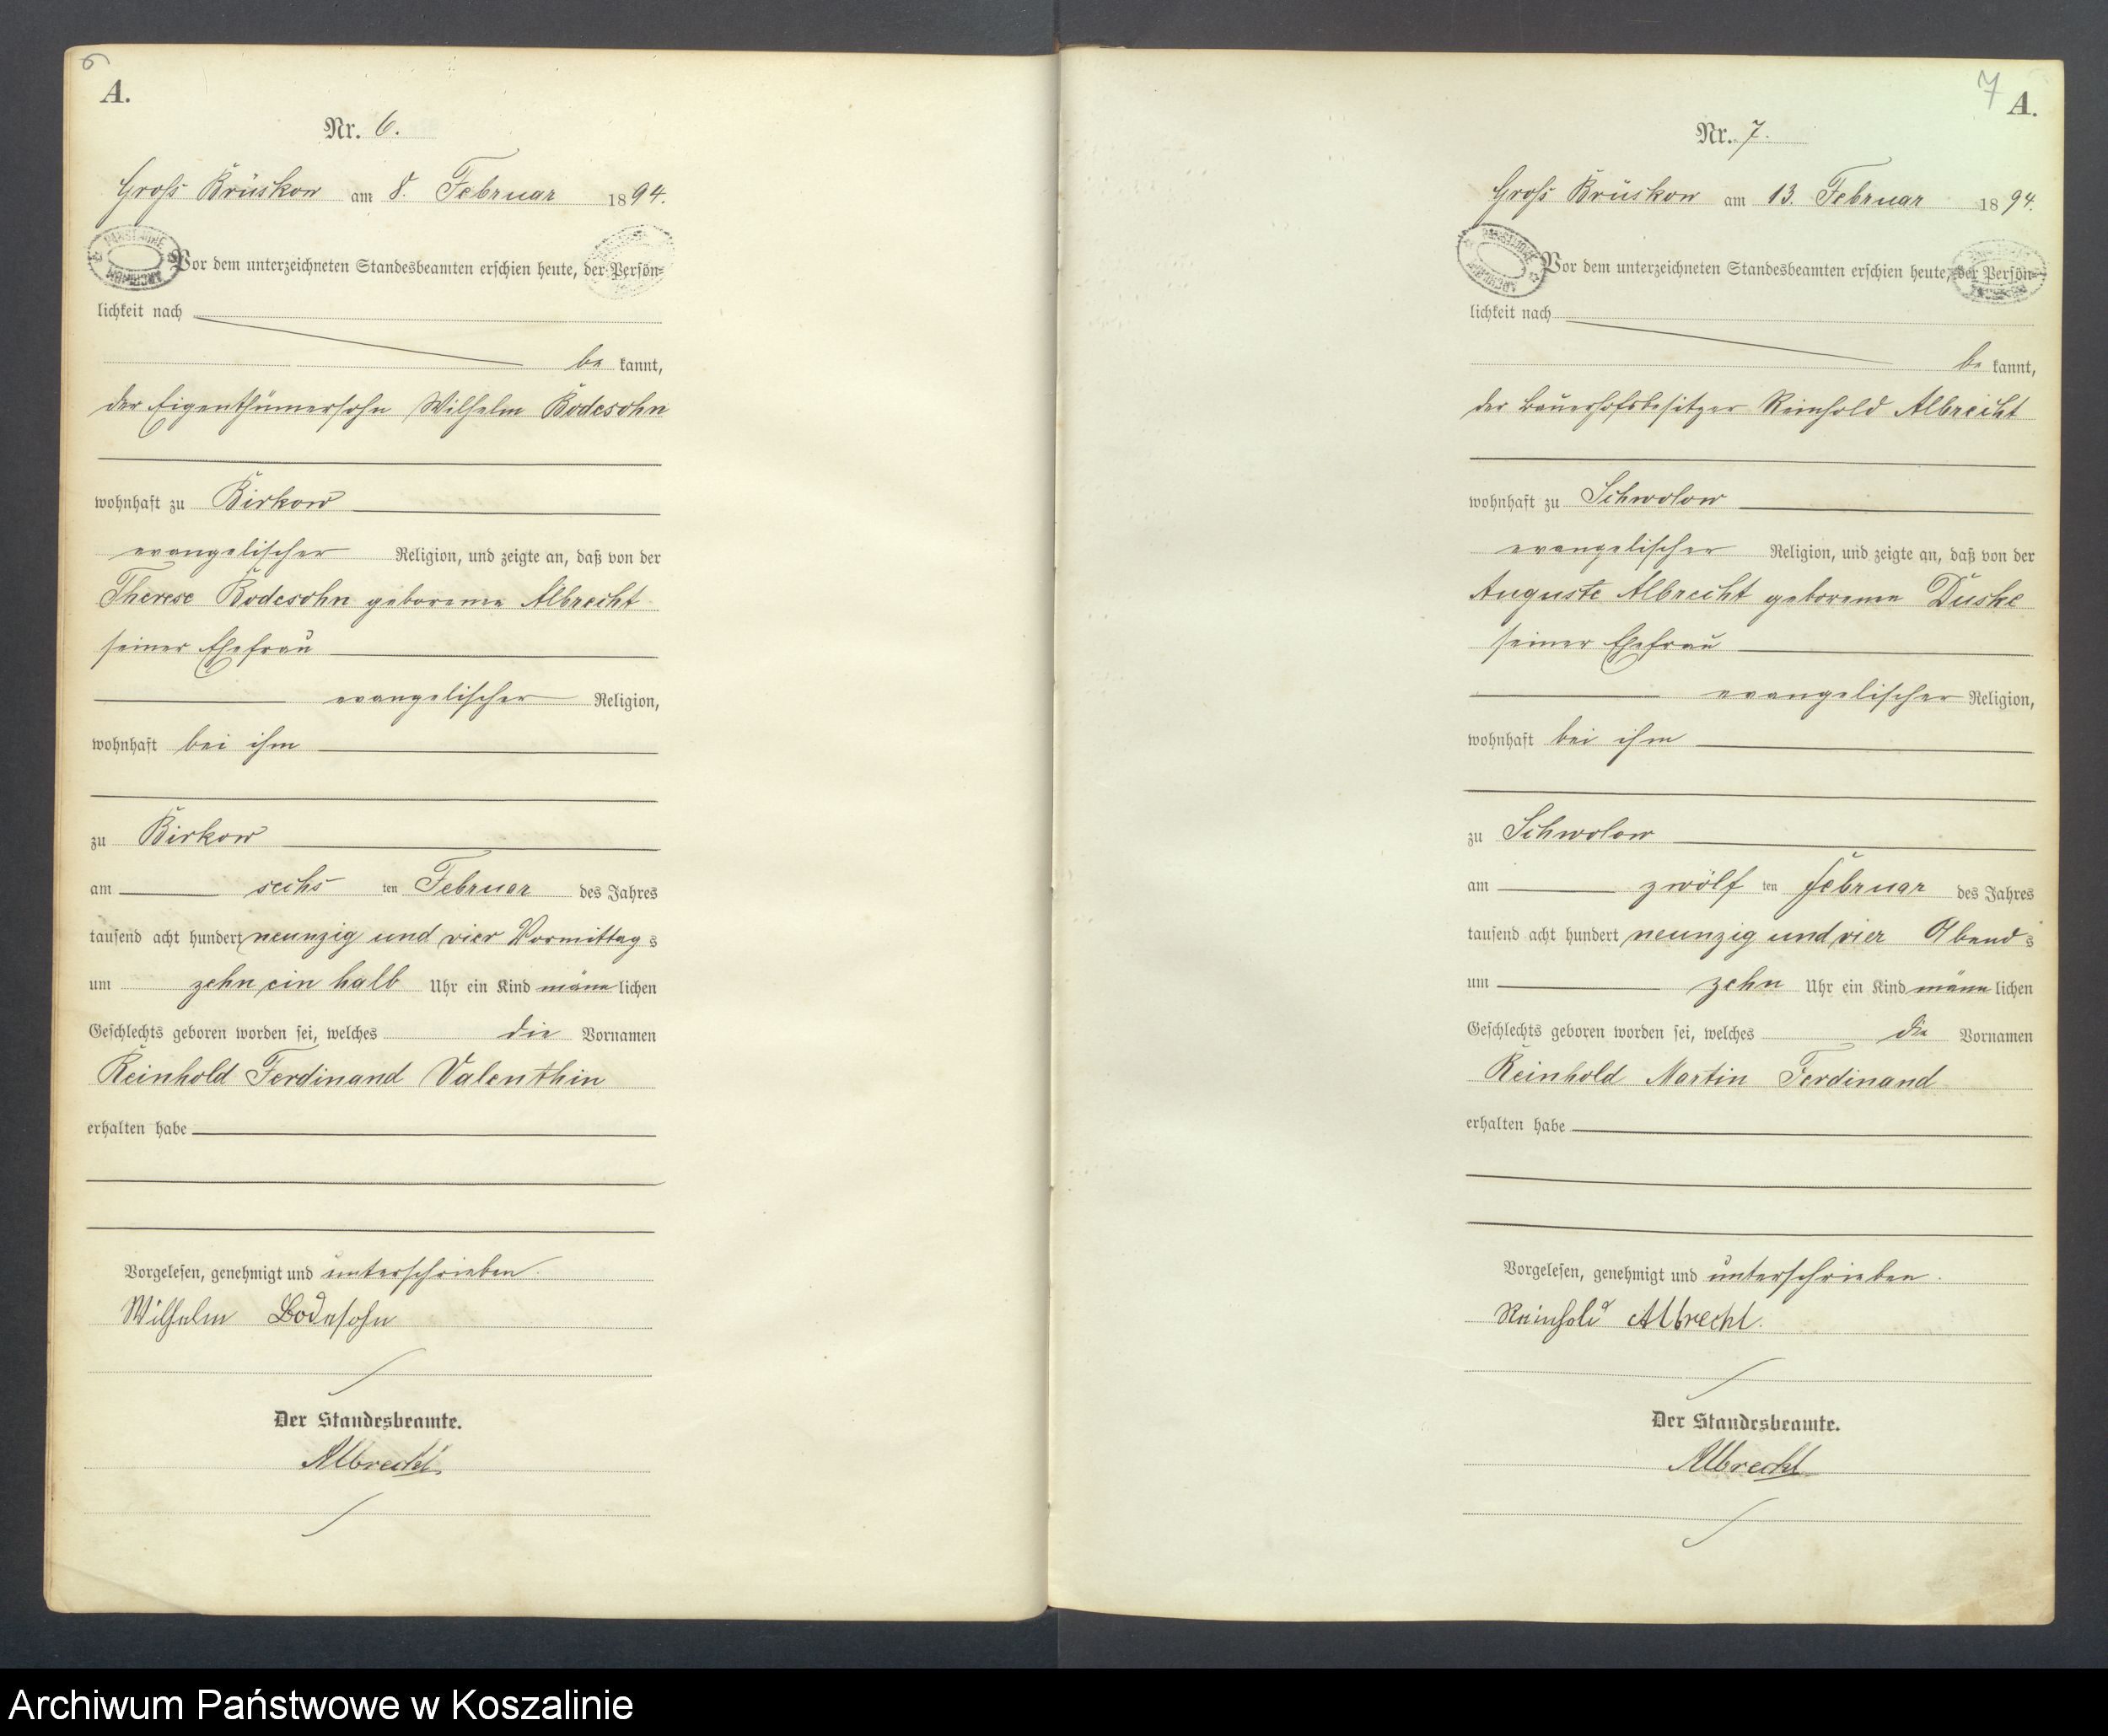 6
A.
Nr. 6.
Groß Brüskow am 8. Februar 1894.
Vor dem unterzeichneten Standesbeamten erschien heute, der Persön-
lichkeit nach
be kannt,
der Eigenthümersohn Wilhelm Bodesohn
wohnhaft zu Birkow
evangelischer Religion, und zeigte an, daß von der
Therese Bodesohn geborenen Albrecht
seiner Ehefrau
evangelischer Religion,
wohnhaft bei ihm
zu Birkow
am sechs ten Februar des Jahres
tausend acht hundert neunzig und vier Vormittag s
um zehn ein halb Uhr ein Kind männ lichen
Geschlechts geboren worden sei, welches die Vornamen
Reinhold Ferdinand Valenthin
erhalten habe
Vorgelesen, genehmigt und unterschrieben.
Wilhelm Bodesohn
Der Standesbeamte.
Albrecht
7
A.
Nr. 7.
Groß Brüskow am 13. Februar 1894.
Vor dem unterzeichneten Standesbeamten erschien heute, der Persön-
lichkeit nach
be kannt,
der Bauerhofsbesitzer Reinhold Albrecht
wohnhaft zu Schwolow
evangelischer Religion, und zeigte an, daß von der
Auguste Albrecht geborenen Duske
seiner Ehefrau
evangelischer Religion,
wohnhaft bei ihm
zu Schwolow
am zwölf ten Februar des Jahres
tausend acht hundert neunzig und vier Abend s
um zehn Uhr ein Kind männ lichen
Geschlechts geboren worden sei, welches die Vornamen
Reinhold Martin Ferdinand
erhalten habe
Vorgelesen, genehmigt und unterschrieben.
Reinhold Albrecht.
Der Standesbeamte.
Albrecht
Archiwum Państwowe w Koszalinie